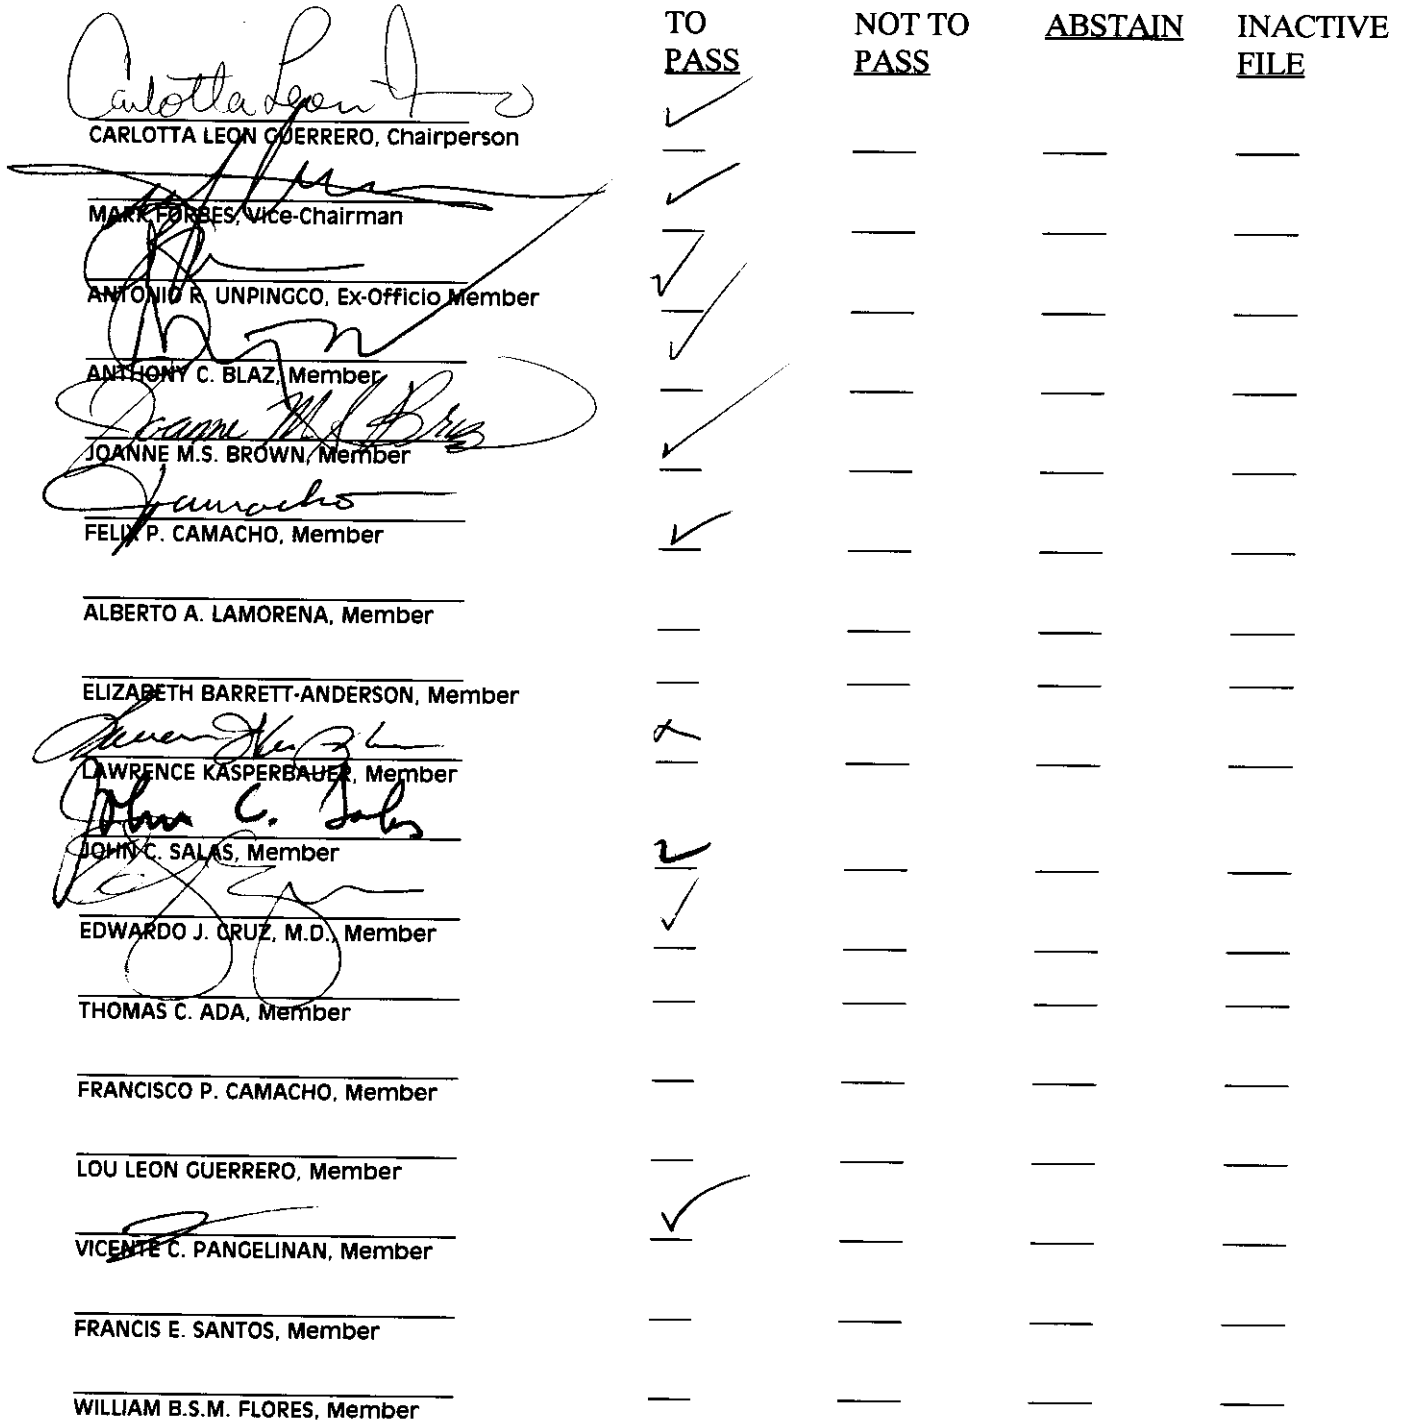 TO NOT TO ABSTAIN INACTIVE
PASS PASS FILE
Carlotta Leon
CARLOTTA LEON GUERRERO, Chairperson
MARK FORBES, Vice-Chairman
ANTONIO R. UNPINGCO, Ex-Officio Member
ANTHONY C. BLAZ, Member
Joanne M.S. Brown
JOANNE M.S. BROWN, Member
Camacho
FELIX P. CAMACHO, Member
ALBERTO A. LAMORENA, Member
ELIZABETH BARRETT-ANDERSON, Member
LAWRENCE KASPERBAUER, Member
John C. Salas
JOHN C. SALAS, Member
EDWARDO J. CRUZ, M.D., Member
THOMAS C. ADA, Member
FRANCISCO P. CAMACHO, Member
LOU LEON GUERRERO, Member
VICENTE C. PANGELINAN, Member
FRANCIS E. SANTOS, Member
WILLIAM B.S.M. FLORES, Member